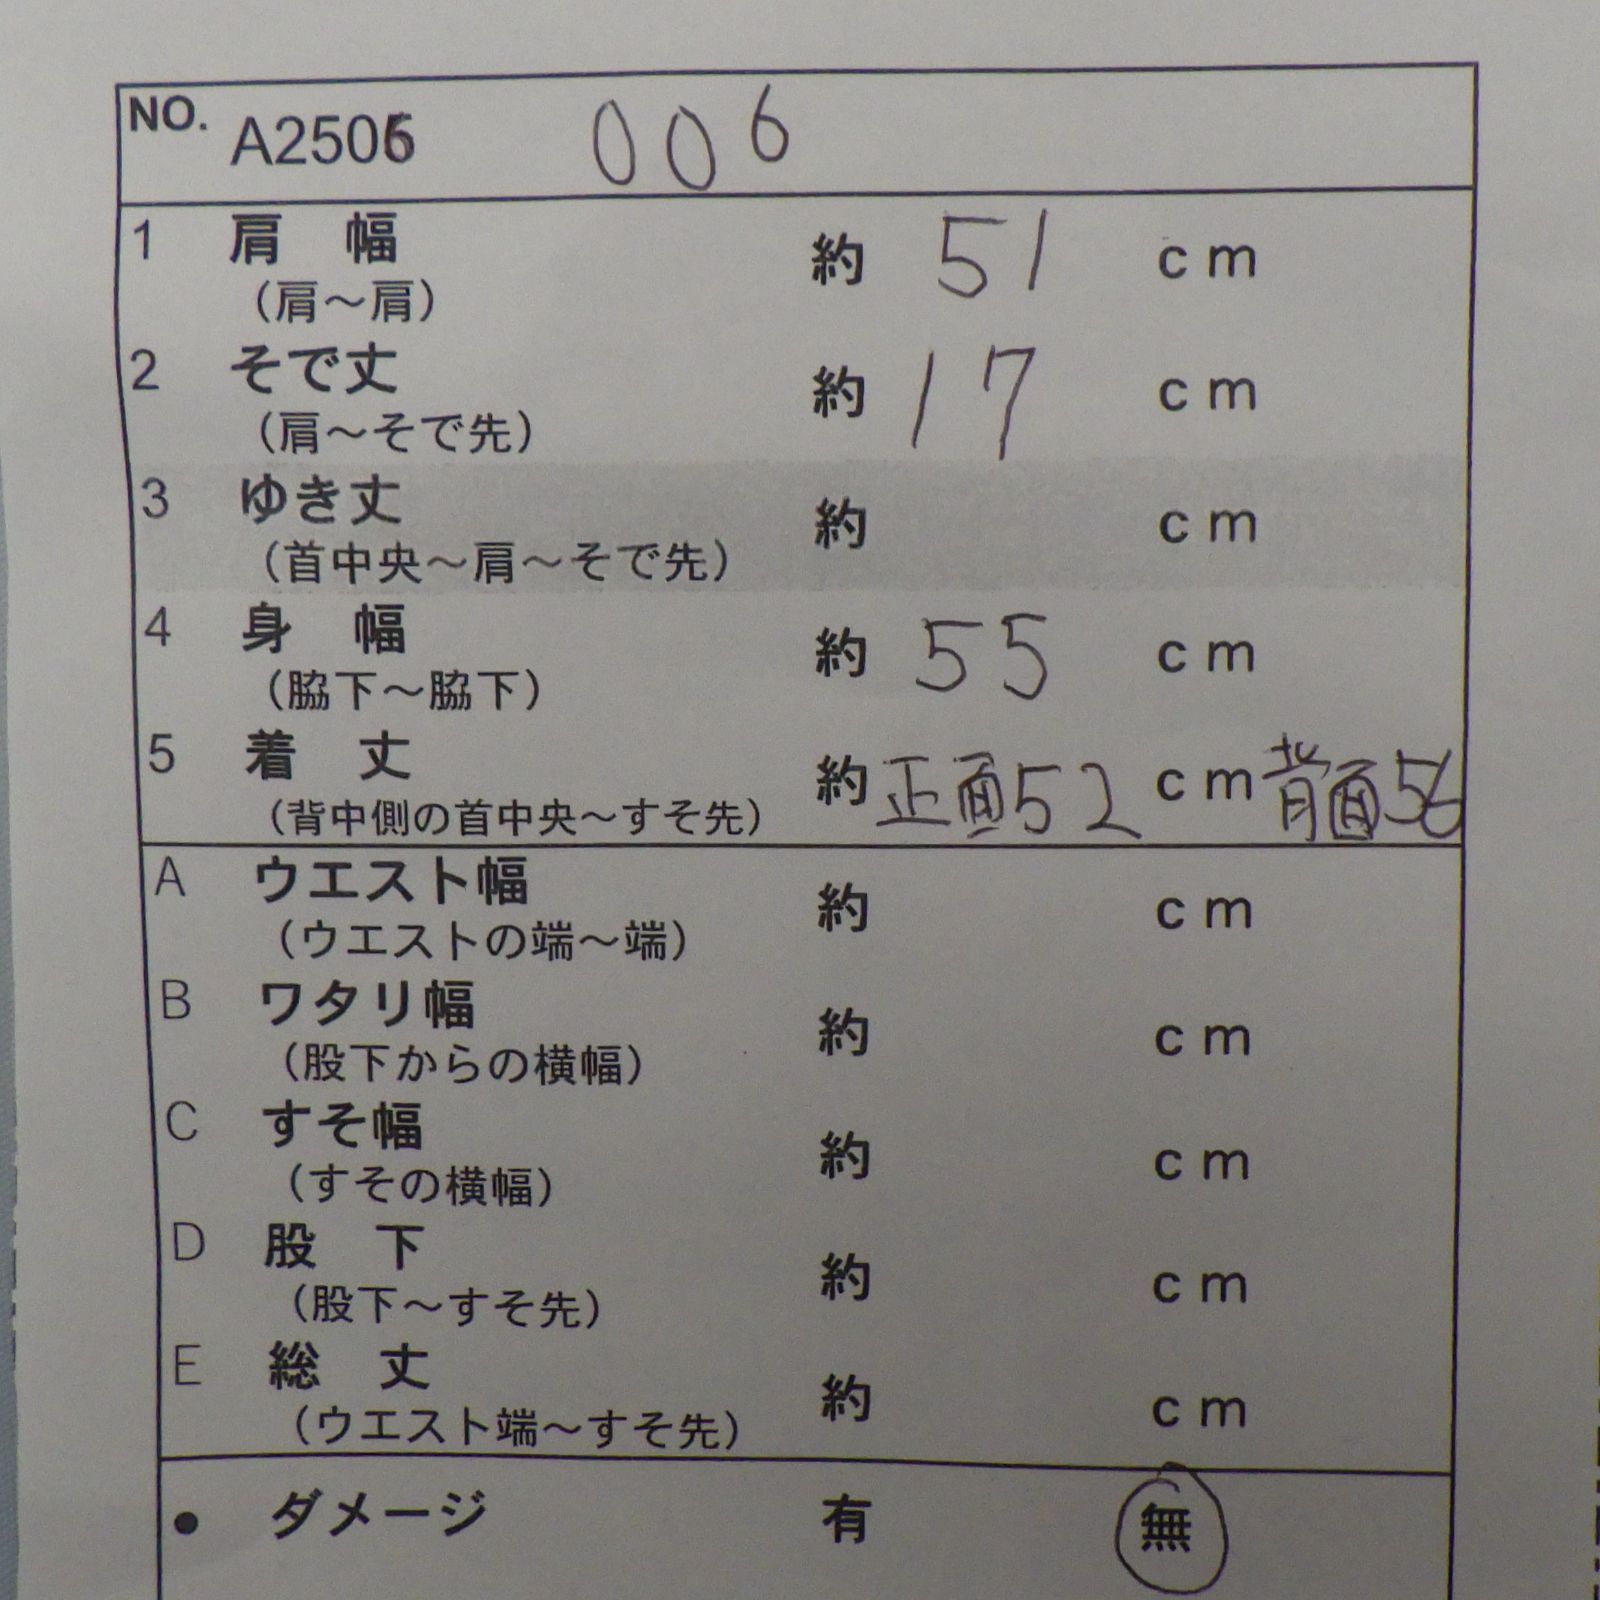 NO. A2506 006
1 肩 幅 約 51 cm
(肩～肩)
2 そで丈 約 17 cm
(肩～そで先)
3 ゆき丈 約 cm
(首中央～肩～そで先)
4 身 幅 約 55 cm
(脇下～脇下)
5 着 丈 約 正面52 cm 背面56
(背中側の首中央～すそ先)
A ウエスト幅 約 cm
(ウエストの端～端)
B ワタリ幅 約 cm
(股下からの横幅)
C すそ幅 約 cm
(すその横幅)
D 股 下 約 cm
(股下～すそ先)
E 総 丈 約 cm
(ウエスト端～すそ先)
● ダメージ 有 無